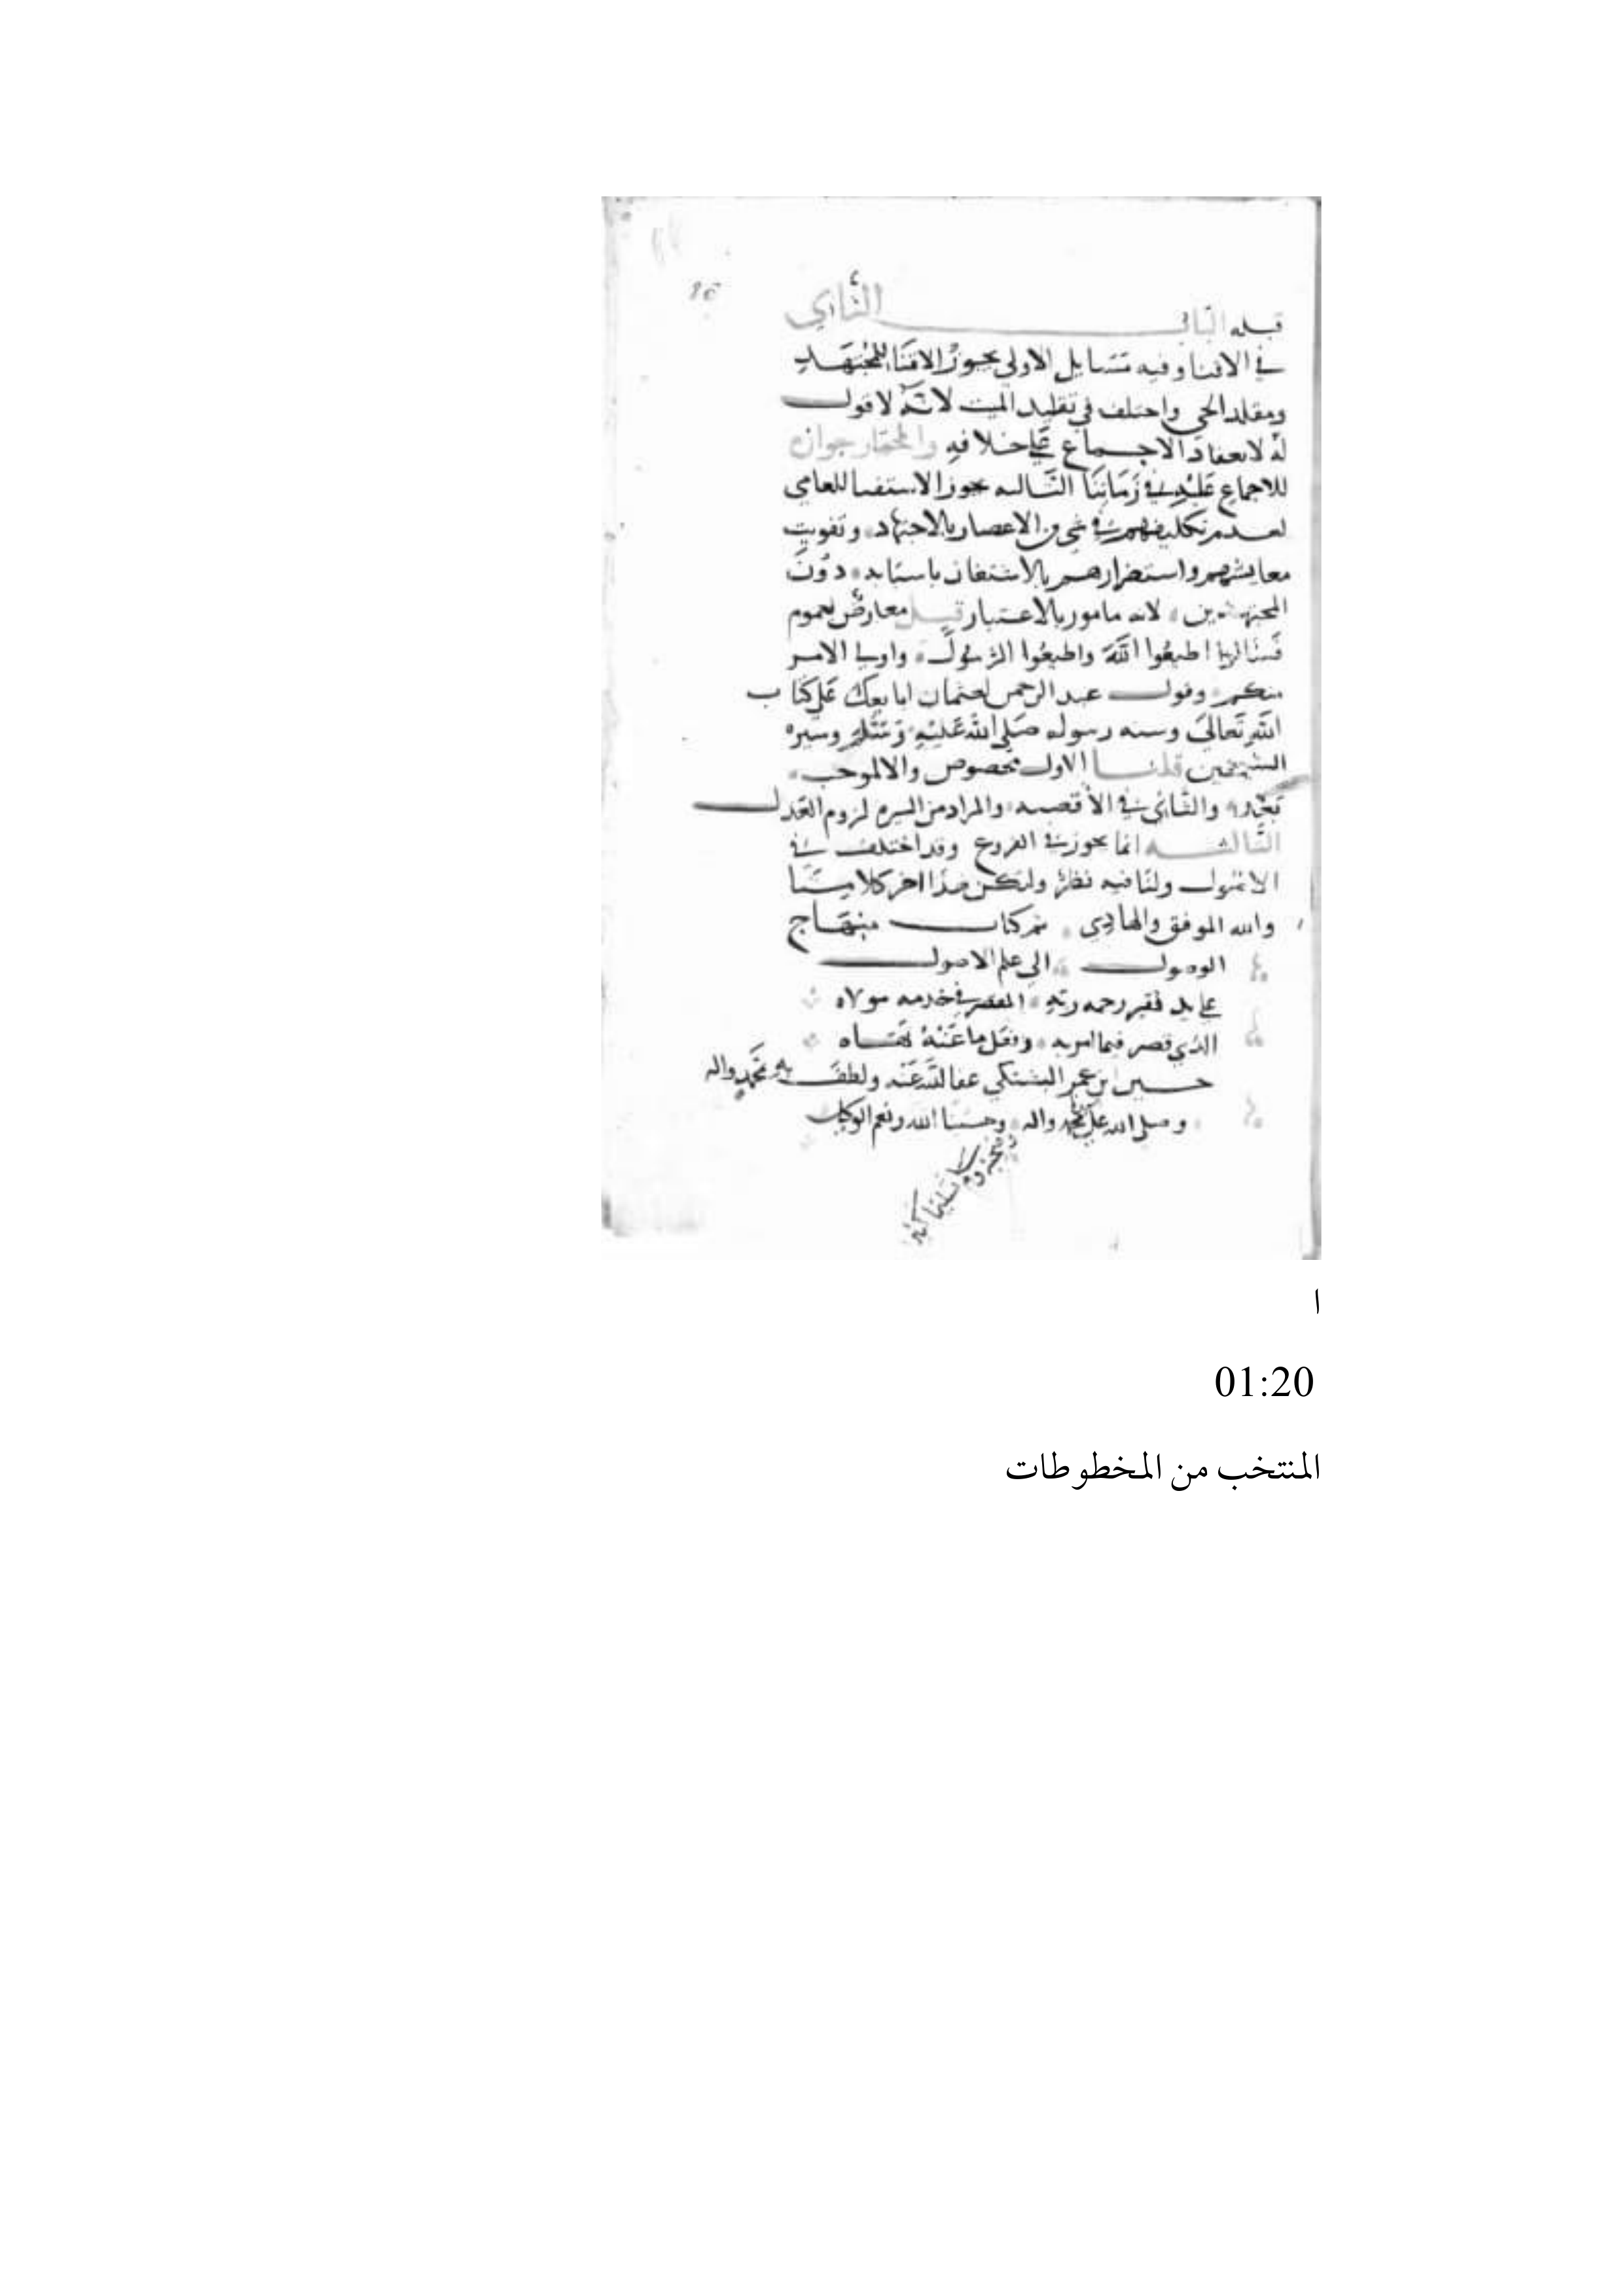 قبله الباب الثاني
في الافتا وفيه مسايل الاولى يجوز الافتا للمجتهد
ومقلد الحي واختلف في تقليد الميت لانه لا قول
له لانعقاد الاجماع على خلافه والمختار جوازه
للاجماع عليه في زماننا الثانيه يجوز الاستفتا للعامي
لعدم تكليفهم في شي من الاعصار بالاجتهاد وتفويت
معايشهم واستضرارهم بالاشتغال باسبابه دون
المجتهدين لانه مامور بالاعتبار قيل معارض بعموم
فسئلوا اطيعوا الله واطيعوا الرسول واولي الامر
منكم وقول عبد الرحمن لعثمان ابايعك على كتاب
الله تعالى وسنه رسوله صلى الله عليه وسلم وسيره
الشيخين قلنا الاول مخصوص والا لوجب
بعد والثاني في الاقضيه والمراد من السيره لزوم العدل
الثالثه انما يجوز في الفروع وقد اختلف في
الاصول ولنا فيه نظر وليكن هذا اخر كلامنا
والله الموفق والهادي تم كتاب منهاج
الوصول الى علم الاصول
على يد فقير رحمه ربه المقصر في خدمه مولاه
الذي قصر فيما امر به وفعل ما عنه نهاه
حسين بن عمر البشتكي عفا الله عنه ولطف به محمد واله
وصلى الله على محمد واله وحسبنا الله ونعم الوكيل
تسليما كثيرا
ا
01:20
المنتخب من المخطوطات